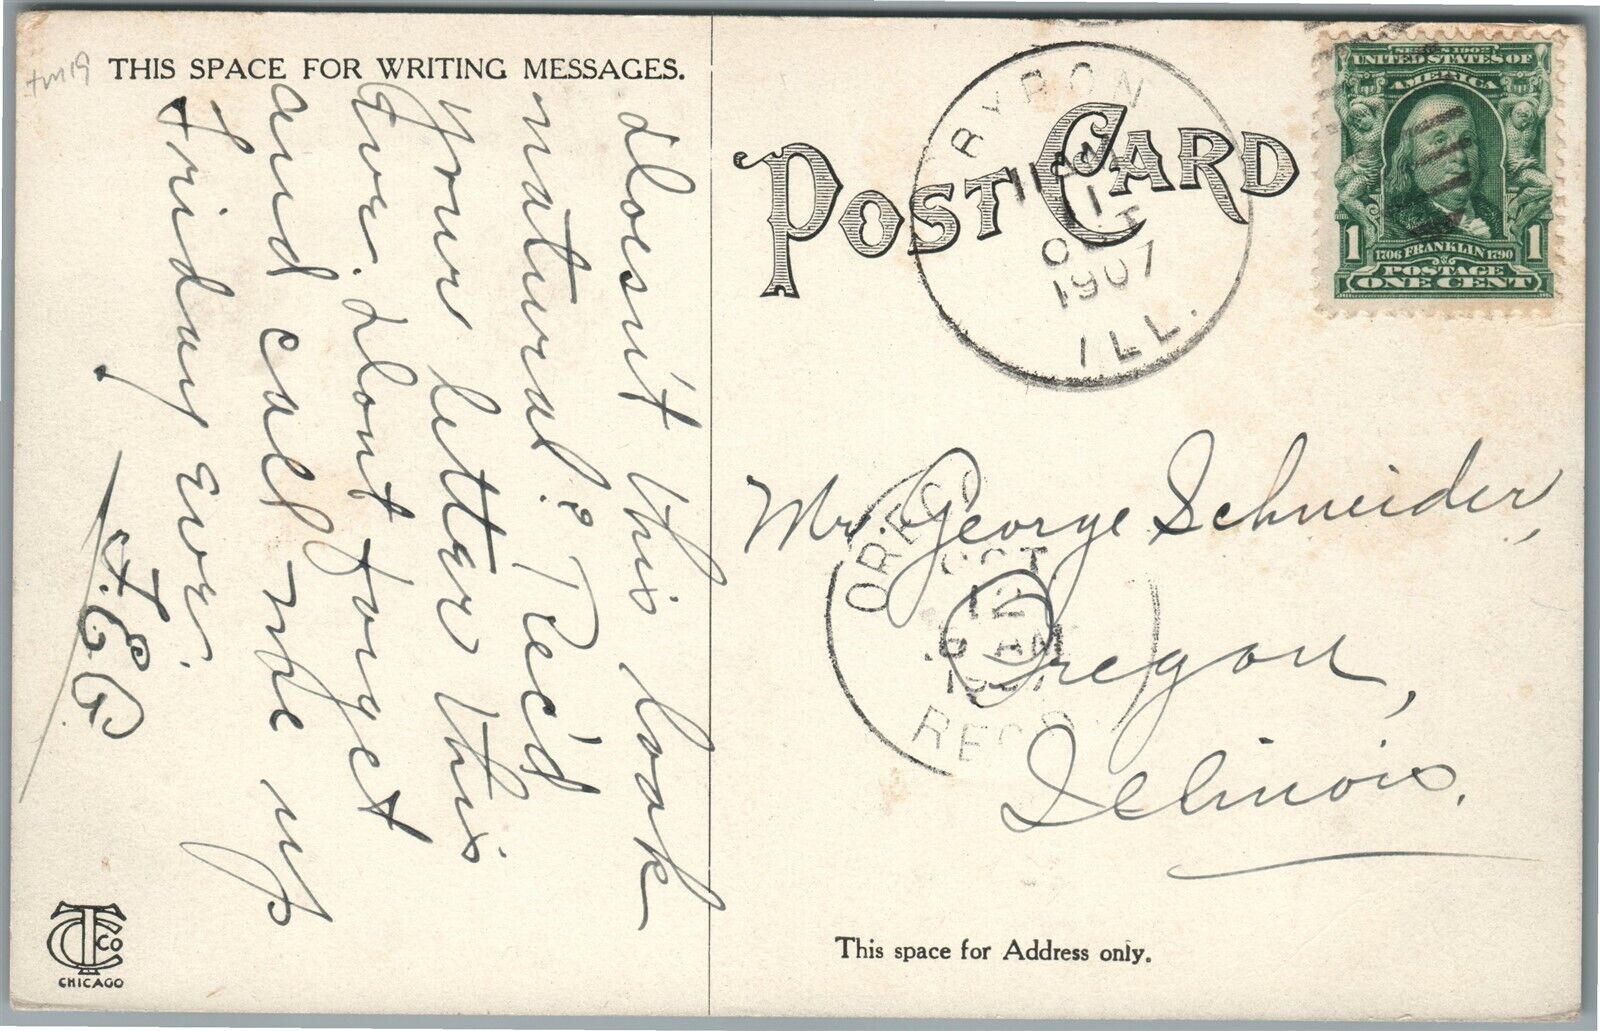 THIS SPACE FOR WRITING MESSAGES.
doesn't this look
natural? Rec'd
your letter this
eve. dont forget
and call me up
Friday eve.
POST CARD
BYRON
11 AM
OCT
1907
ILL.
SERIES 1902
UNITED STATES OF
AMERICA
1 FRANKLIN 1
1706 1790
POSTAGE
ONE CENT
Mr. George Schneider,
Oregon,
Illinois.
OREGO
OCT
12
AM
1907
REC'D
This space for Address only.
CTCO
CHICAGO